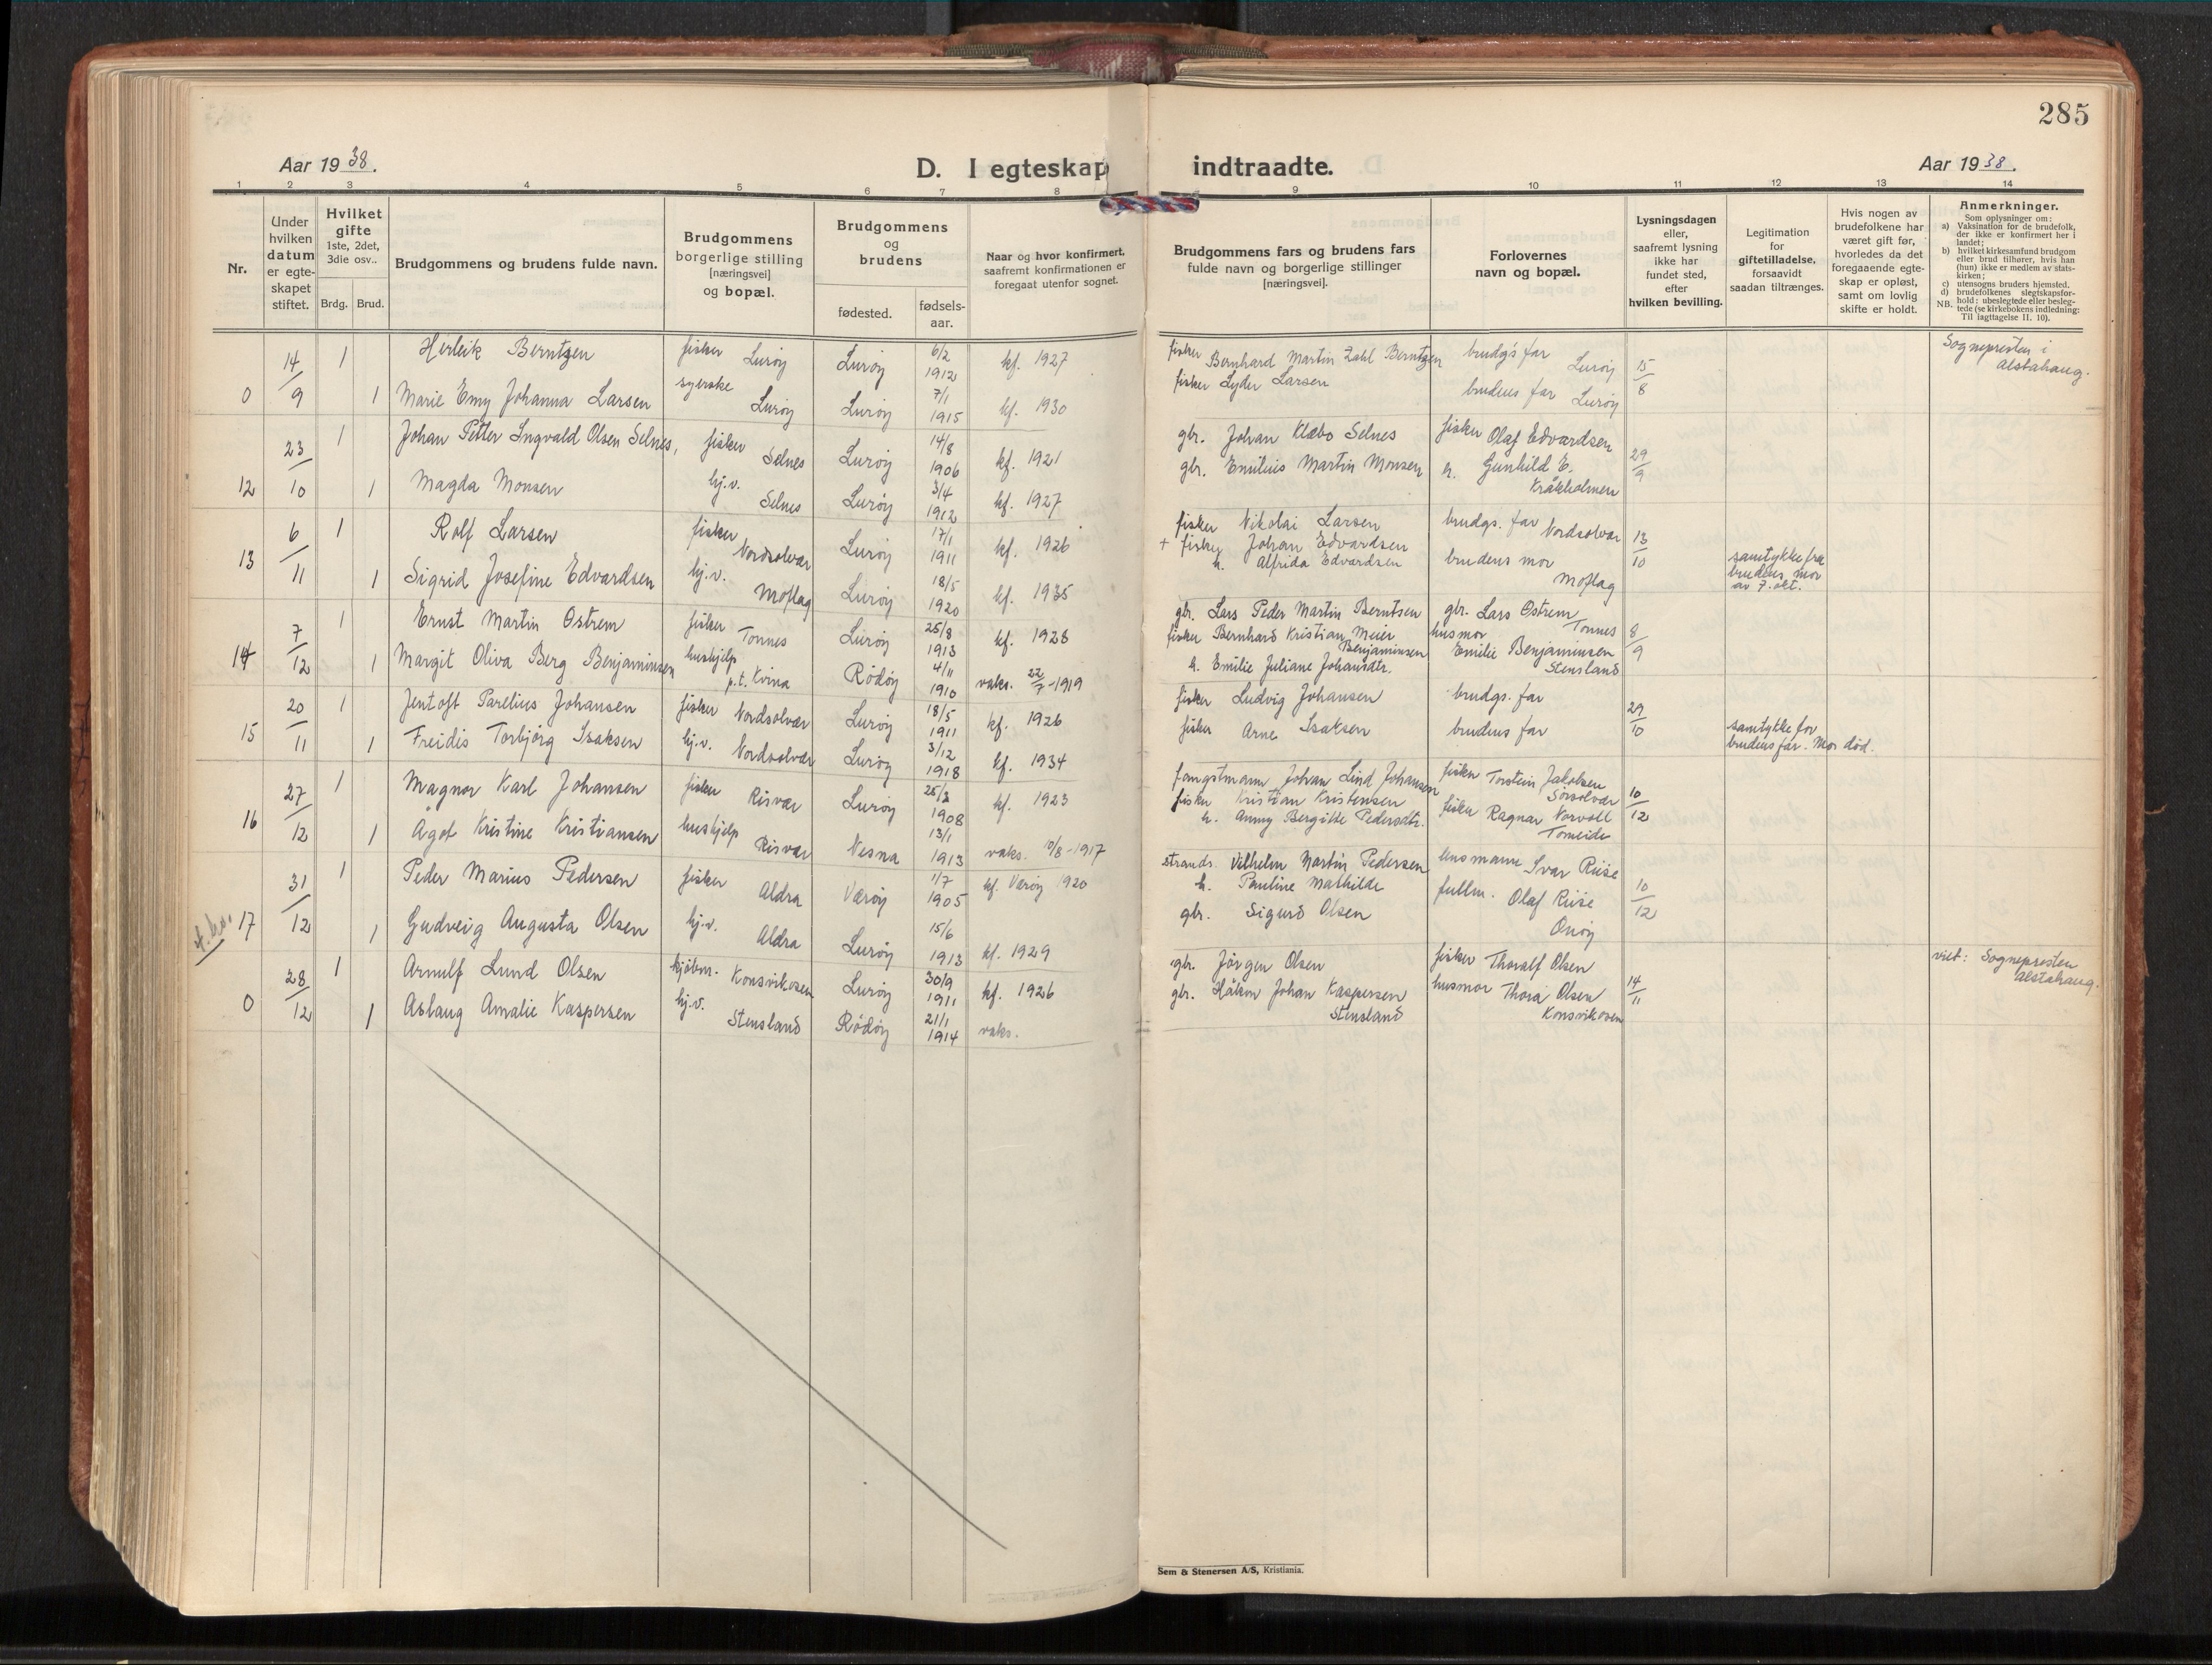 285
Aar 1938.
D. I egteskap indtraadte.
Aar 1938.
1 2 3 4 5 6 7 8 9 10 11 12 13 14
Nr.
Under hvilken datum er egte-skapet stiftet.
Hvilket gifte 1ste, 2det, 3die osv..
Brdg. Brud.
Brudgommens og brudens fulde navn.
Brudgommens borgerlige stilling [næringsvei] og bopæl.
Brudgommens og brudens
fødested.
fødsels-aar.
Naar og hvor konfirmert, saafremt konfirmationen er foregaat utenfor sognet.
Brudgommens fars og brudens fars fulde navn og borgerlige stillinger [næringsvei].
Forlovernes navn og bopæl.
Lysningsdagen eller, saafremt lysning ikke har fundet sted, efter hvilken bevilling.
Legitimation for giftetilladelse, forsaavidt saadan tiltrænges.
Hvis nogen av brudefolkene har været gift før, hvorledes da det foregaaende egte-skap er opløst, samt om lovlig skifte er holdt.
Anmerkninger.
Som oplysninger om:
a) Vaksination for de brudefolk, der ikke er konfirmert her i landet;
b) hvilket kirkesamfund brudgom eller brud tilhører, hvis han (hun) ikke er medlem av stats-kirken;
c) utensogns bruders hjemsted.
d) brudefolkenes slegtskapsfor-hold: ubeslegtede eller besleg-tede (se kirkebokens indledning: Til iagttagelse II. 10).
NB.
14/9 1 Herleik Berntzen fisker Lurøy Lurøy 6/2 1912 kf. 1927 fisker Bernhard Martin Zahl Berntzen brudg's far Lurøy 15/8 Sognepresten i Alstahaug.
0 1 Marie Emy Johanna Larsen syerske Lurøy Lurøy 7/1 1915 kf. 1930 fisker Lyder Larsen brudens far Lurøy
23/10 1 Johan Petter Ingvald Olsen Selnes, fisker Selnes Lurøy 14/8 1906 kf. 1921 gbr. Johan Klæbo Selnes fisker Olaf Edvardsen 29/9
12 1 Magda Monsen hj.v. Selnes Lurøy 3/4 1912 kf. 1927 gbr. Emilius Martin Monsen h. Gunhild E. Kråkholmen
6/11 1 Rolf Larsen fisker Nordsolvær Lurøy 17/1 1911 kf. 1926 fisker Nikolai Larsen brudgs. far Nordsolvær 13/10
13 1 Sigrid Josefine Edvardsen hj.v. Moflag Lurøy 18/5 1920 kf. 1935 + fisker Johan Edvardsen h. Alfrida Edvardsen brudens mor Moflag samtykke fra brudens mor av 7. okt.
7/12 1 Ernst Martin Østrem fisker Tonnes Lurøy 25/8 1913 kf. 1928 gbr. Lars Peder Martin Berntsen gbr. Lars Østrem Tonnes 8/9
14 1 Margit Oliva Berg Benjaminsen hushjelp p.t. Kvina Rødøy 4/11 1910 vaks. 22/7-1919 fisker Bernhard Kristian Meier Benjaminsen h. Emilie Juliane Johansdtr. husmor Emilie Benjaminsen Stensland
20/11 1 Jentoft Parelius Johansen fisker Nordsolvær Lurøy 18/5 1911 kf. 1926 fisker Ludvig Johansen brudgs. far 29/10
15 1 Freidis Torbjørg Isaksen hj.v. Nordsolvær Lurøy 3/12 1918 kf. 1934 fisker Arne Isaksen brudens far samtykke for brudens far. Mor død.
27/12 1 Magnor Karl Johansen fisker Risvær Lurøy 25/3 1908 kf. 1923 fangstmann Johan Lind Johansen fisker Torstein Jakobsen Sørsolvær 10/12
16 1 Ågot Kristine Kristiansen hushjelp Risvær Nesna 13/1 1913 vaks. 10/8-1917 fisker Kristian Kristensen h. Anny Bergitte Pedersdtr. fisker Ragnar Vorvoll Tomeide
31/12 1 Peder Marius Pedersen fisker Aldra Værøy 1/7 1905 kf. Værøy 1920 strands. Vilhelm Martin Pedersen h. Pauline Mathilde lensmann Ivar Riise 10/12
17 1 Gudveig Augusta Olsen hj.v. Aldra Lurøy 15/6 1913 kf. 1929 gbr. Sigurd Olsen fullm. Olaf Riise Onøy
28/12 1 Arnulf Lund Olsen kjøbm. Konsvikosen Lurøy 30/9 1911 kf. 1926 gbr. Jørgen Olsen fisker Thoralf Olsen 14/11 viet: Sognepresten Alstahaug.
0 1 Aslaug Amalie Kaspersen hj.v. Stensland Rødøy 21/1 1914 vaks. gbr. Håkon Johan Kaspersen Stensland husmor Thora Olsen Konsvikosen
Sem & Stenersen A/S, Kristiania.